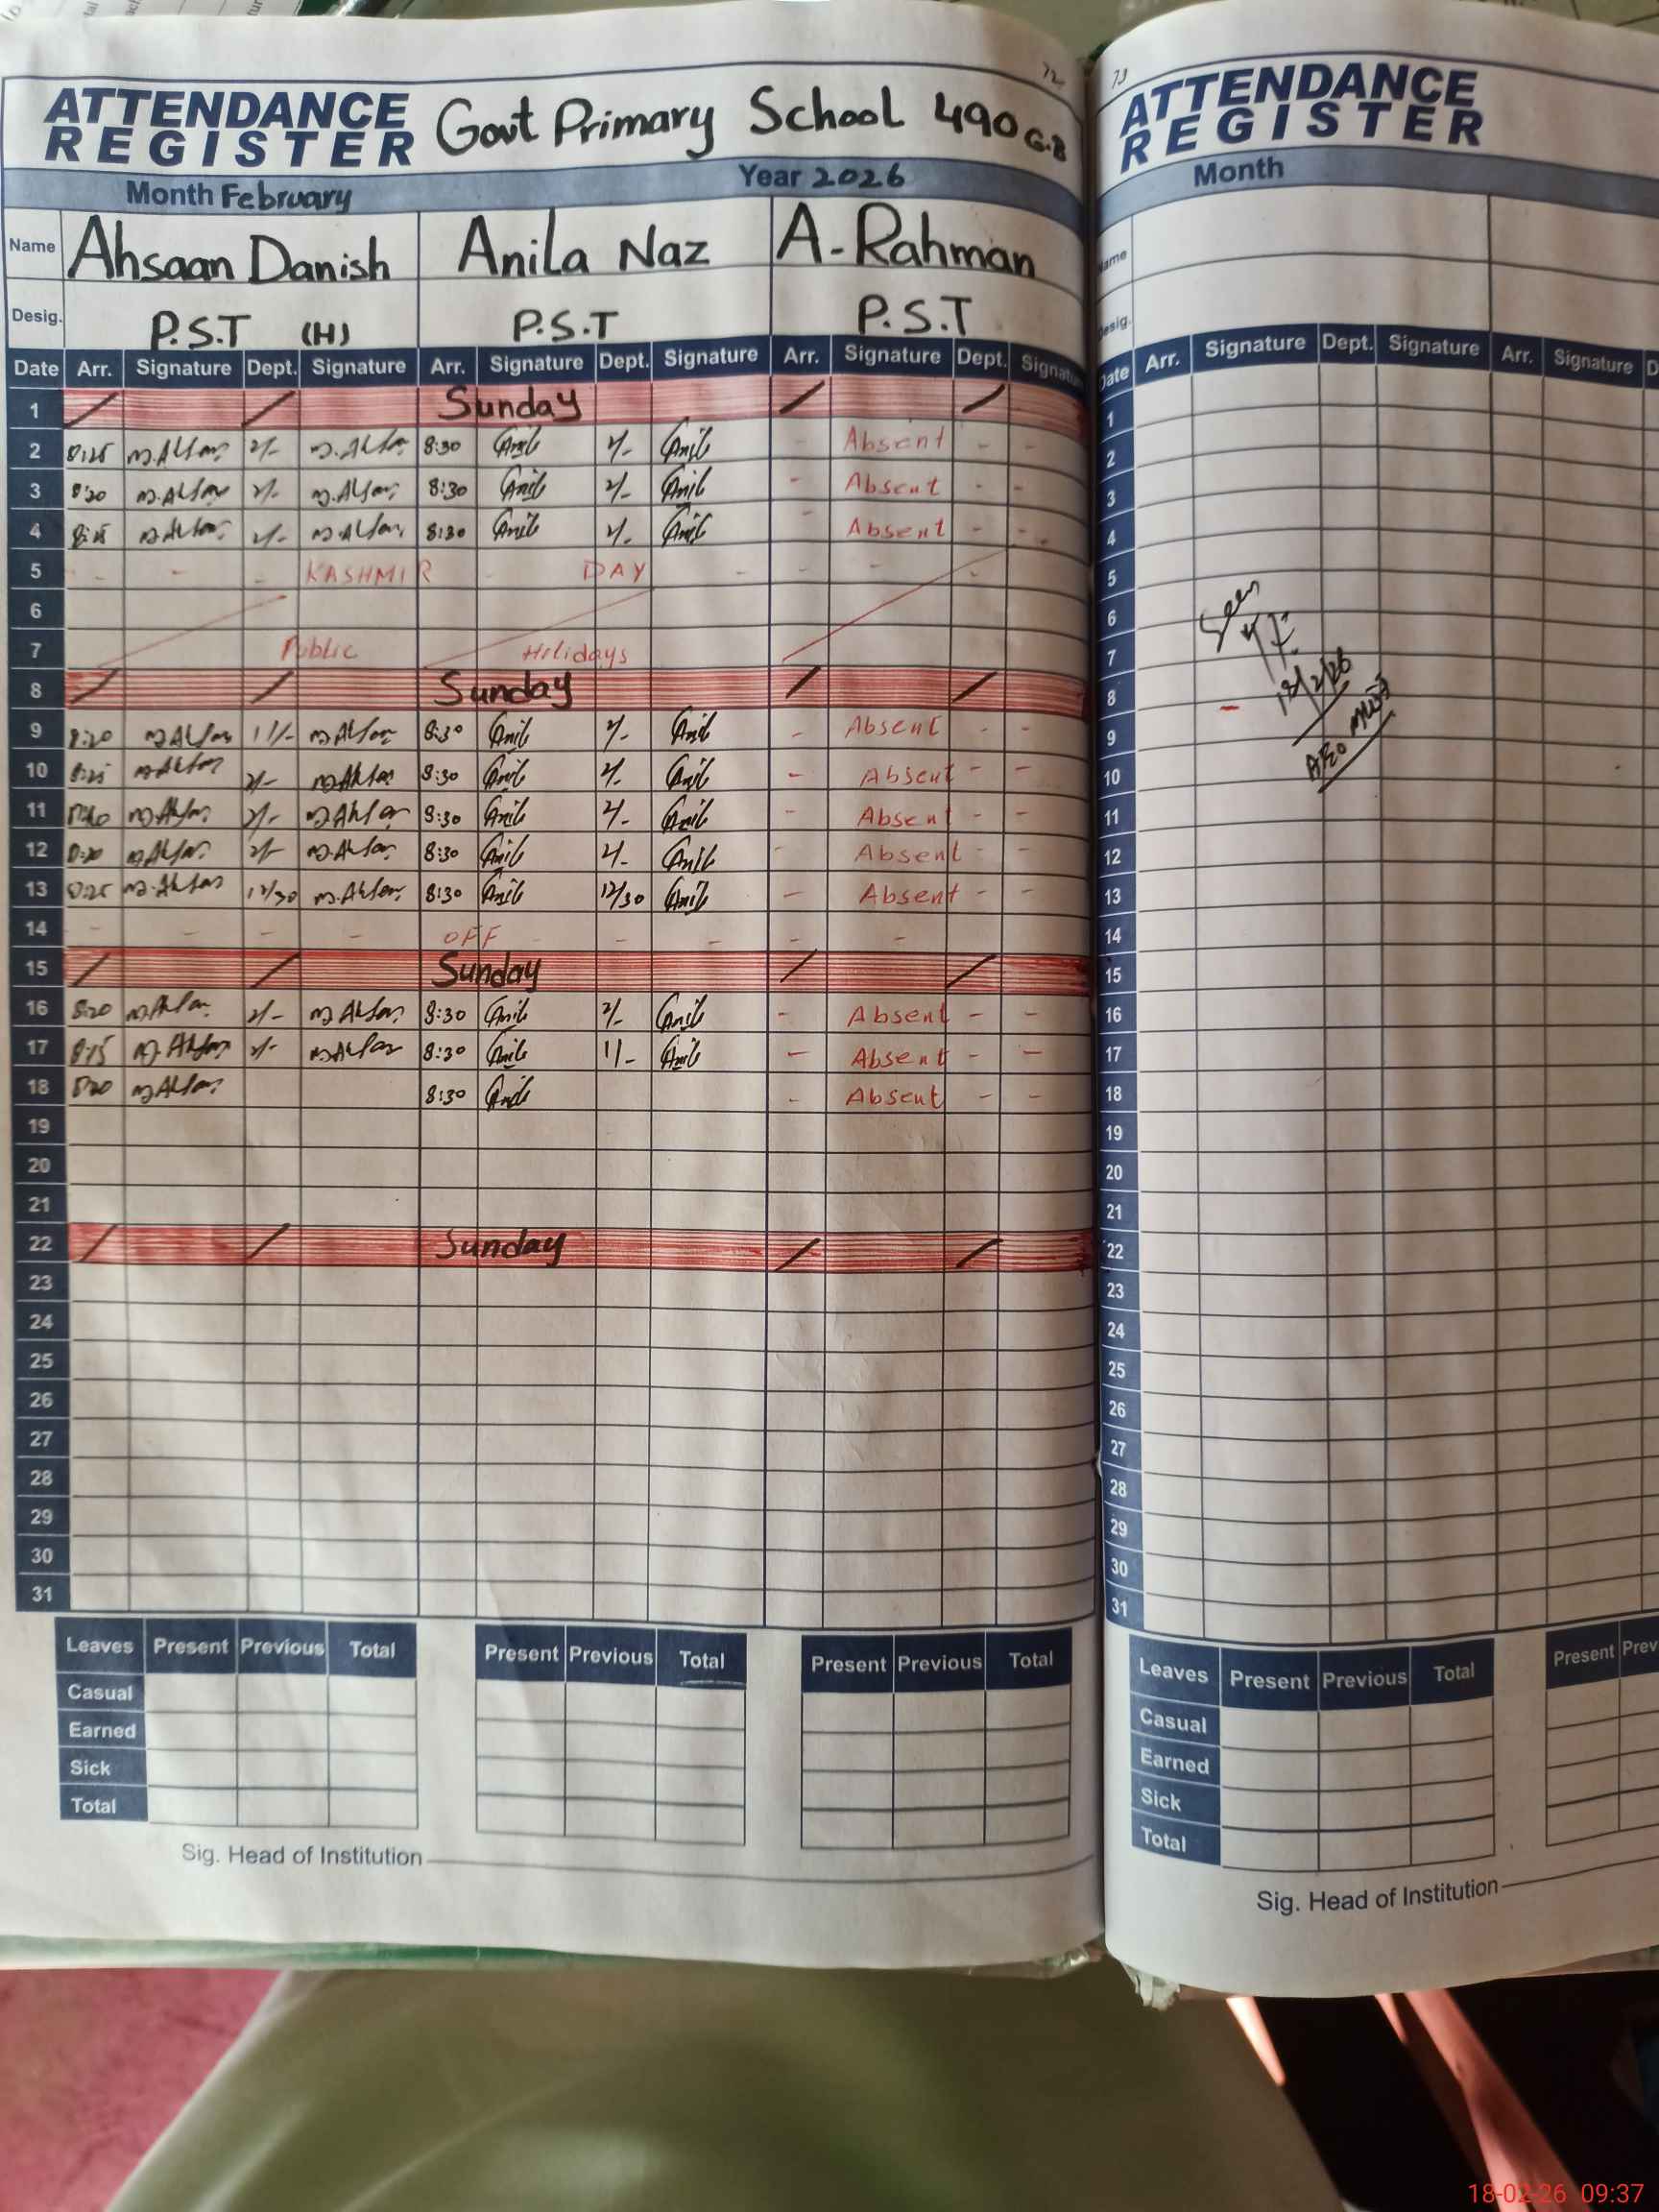 72
ATTENDANCE
REGISTER
Govt Primary School 490 G.B
Month February Year 2026
Name Ahsaan Danish Anila Naz A-Rahman
Desig. P.S.T (H) P.S.T P.S.T
Date Arr. Signature Dept. Signature Arr. Signature Dept. Signature Arr. Signature Dept. Signature
1 Sunday
2 8:25 2/- 8:30 Anil 2/- Anil - Absent - -
3 8:20 2/- 8:30 Anil 2/- Anil - Absent - -
4 2/- 8:30 Anil 2/- Anil - Absent - -
5 - - - KASHMIR - DAY - - - -
6
7 Public Holidays
8 Sunday
9 8:20 11/- 8:30 Anil 2/- Anil - Absent - -
10 8:25 2/- 8:30 Anil 2/- Anil - Absent - -
11 2/- 8:30 Anil 2/- Anil - Absent - -
12 8:20 2/- 8:30 Anil 2/- Anil - Absent - -
13 8:25 12/30 8:30 Anil 12/30 Anil - Absent - -
14 - - - - OFF - - - -
15 Sunday
16 8:20 2/- 8:30 Anil 2/- Anil - Absent - -
17 8:15 2/- 8:30 Anil 1/- Anil - Absent - -
18 8:20 8:30 Anil - Absent - -
19
20
21
22 Sunday
23
24
25
26
27
28
29
30
31
Leaves Present Previous Total Present Previous Total Present Previous Total
Casual
Earned
Sick
Total
Sig. Head of Institution
73
ATTENDANCE
REGISTER
Month
Name
Desig.
Date Arr. Signature Dept. Signature Arr. Signature
1
2
3
4
5
6
7
8
9
10
11
12
13
14
15
16
17
18
19
20
21
22
23
24
25
26
27
28
29
30
31
Seen
18/2/26
AEO
Leaves Present Previous Total Present
Casual
Earned
Sick
Total
Sig. Head of Institution
18-02-26 09:37